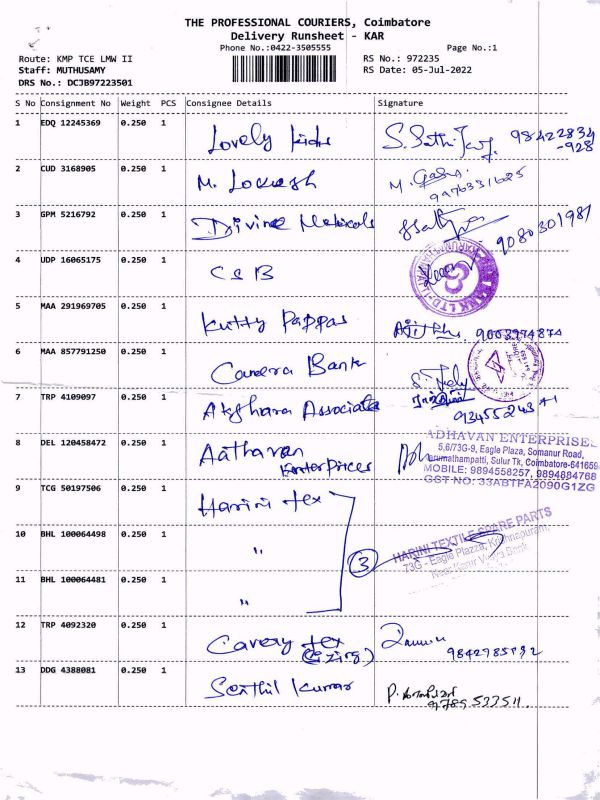 THE PROFESSIONAL COURIERS, Coimbatore
Delivery Runsheet - KAR
Phone No.:0422-3505555
Page No.:1
Route: KMP TCE LMW II
RS No.: 972235
Staff: MUTHUSAMY
RS Date: 05-Jul-2022
DRS No.: DCJB97223501
S No Consignment No Weight PCS Consignee Details Signature
1 EDQ 12245369 0.250 1 Lovely kids 98422834
-928
2 CUD 3168905 0.250 1 M. Lokesh M.
3 GPM 5216792 0.250 1 Divine Medicals 9080301981
4 UDP 16065175 0.250 1 CSB
5 MAA 291969705 0.250 1 Kutty Pappas
6 MAA 857791250 0.250 1 Canera Bank
7 TRP 4109097 0.250 1 Akshara Associate
8 DEL 120458472 0.250 1 Aathavan
Enterprices
ADHAVAN ENTERPRISES
5,6/73G-9, Eagle Plaza, Somanur Road,
Karumathampatti, Sulur Tk, Coimbatore-641659
MOBILE: 9894558257, 9894884768
GST NO: 33ABTFA2090G1ZG
9 TCG 50197506 0.250 1 Harini tex
10 BHL 100064498 0.250 1 "
3
HARINI TEXTILE SPARE PARTS
73G - Eagle Plazza, Krishnapuram,
11 BHL 100064481 0.250 1 "
12 TRP 4092320 0.250 1 Cavery tex
13 DDG 4388081 0.250 1 Senthil Kumar